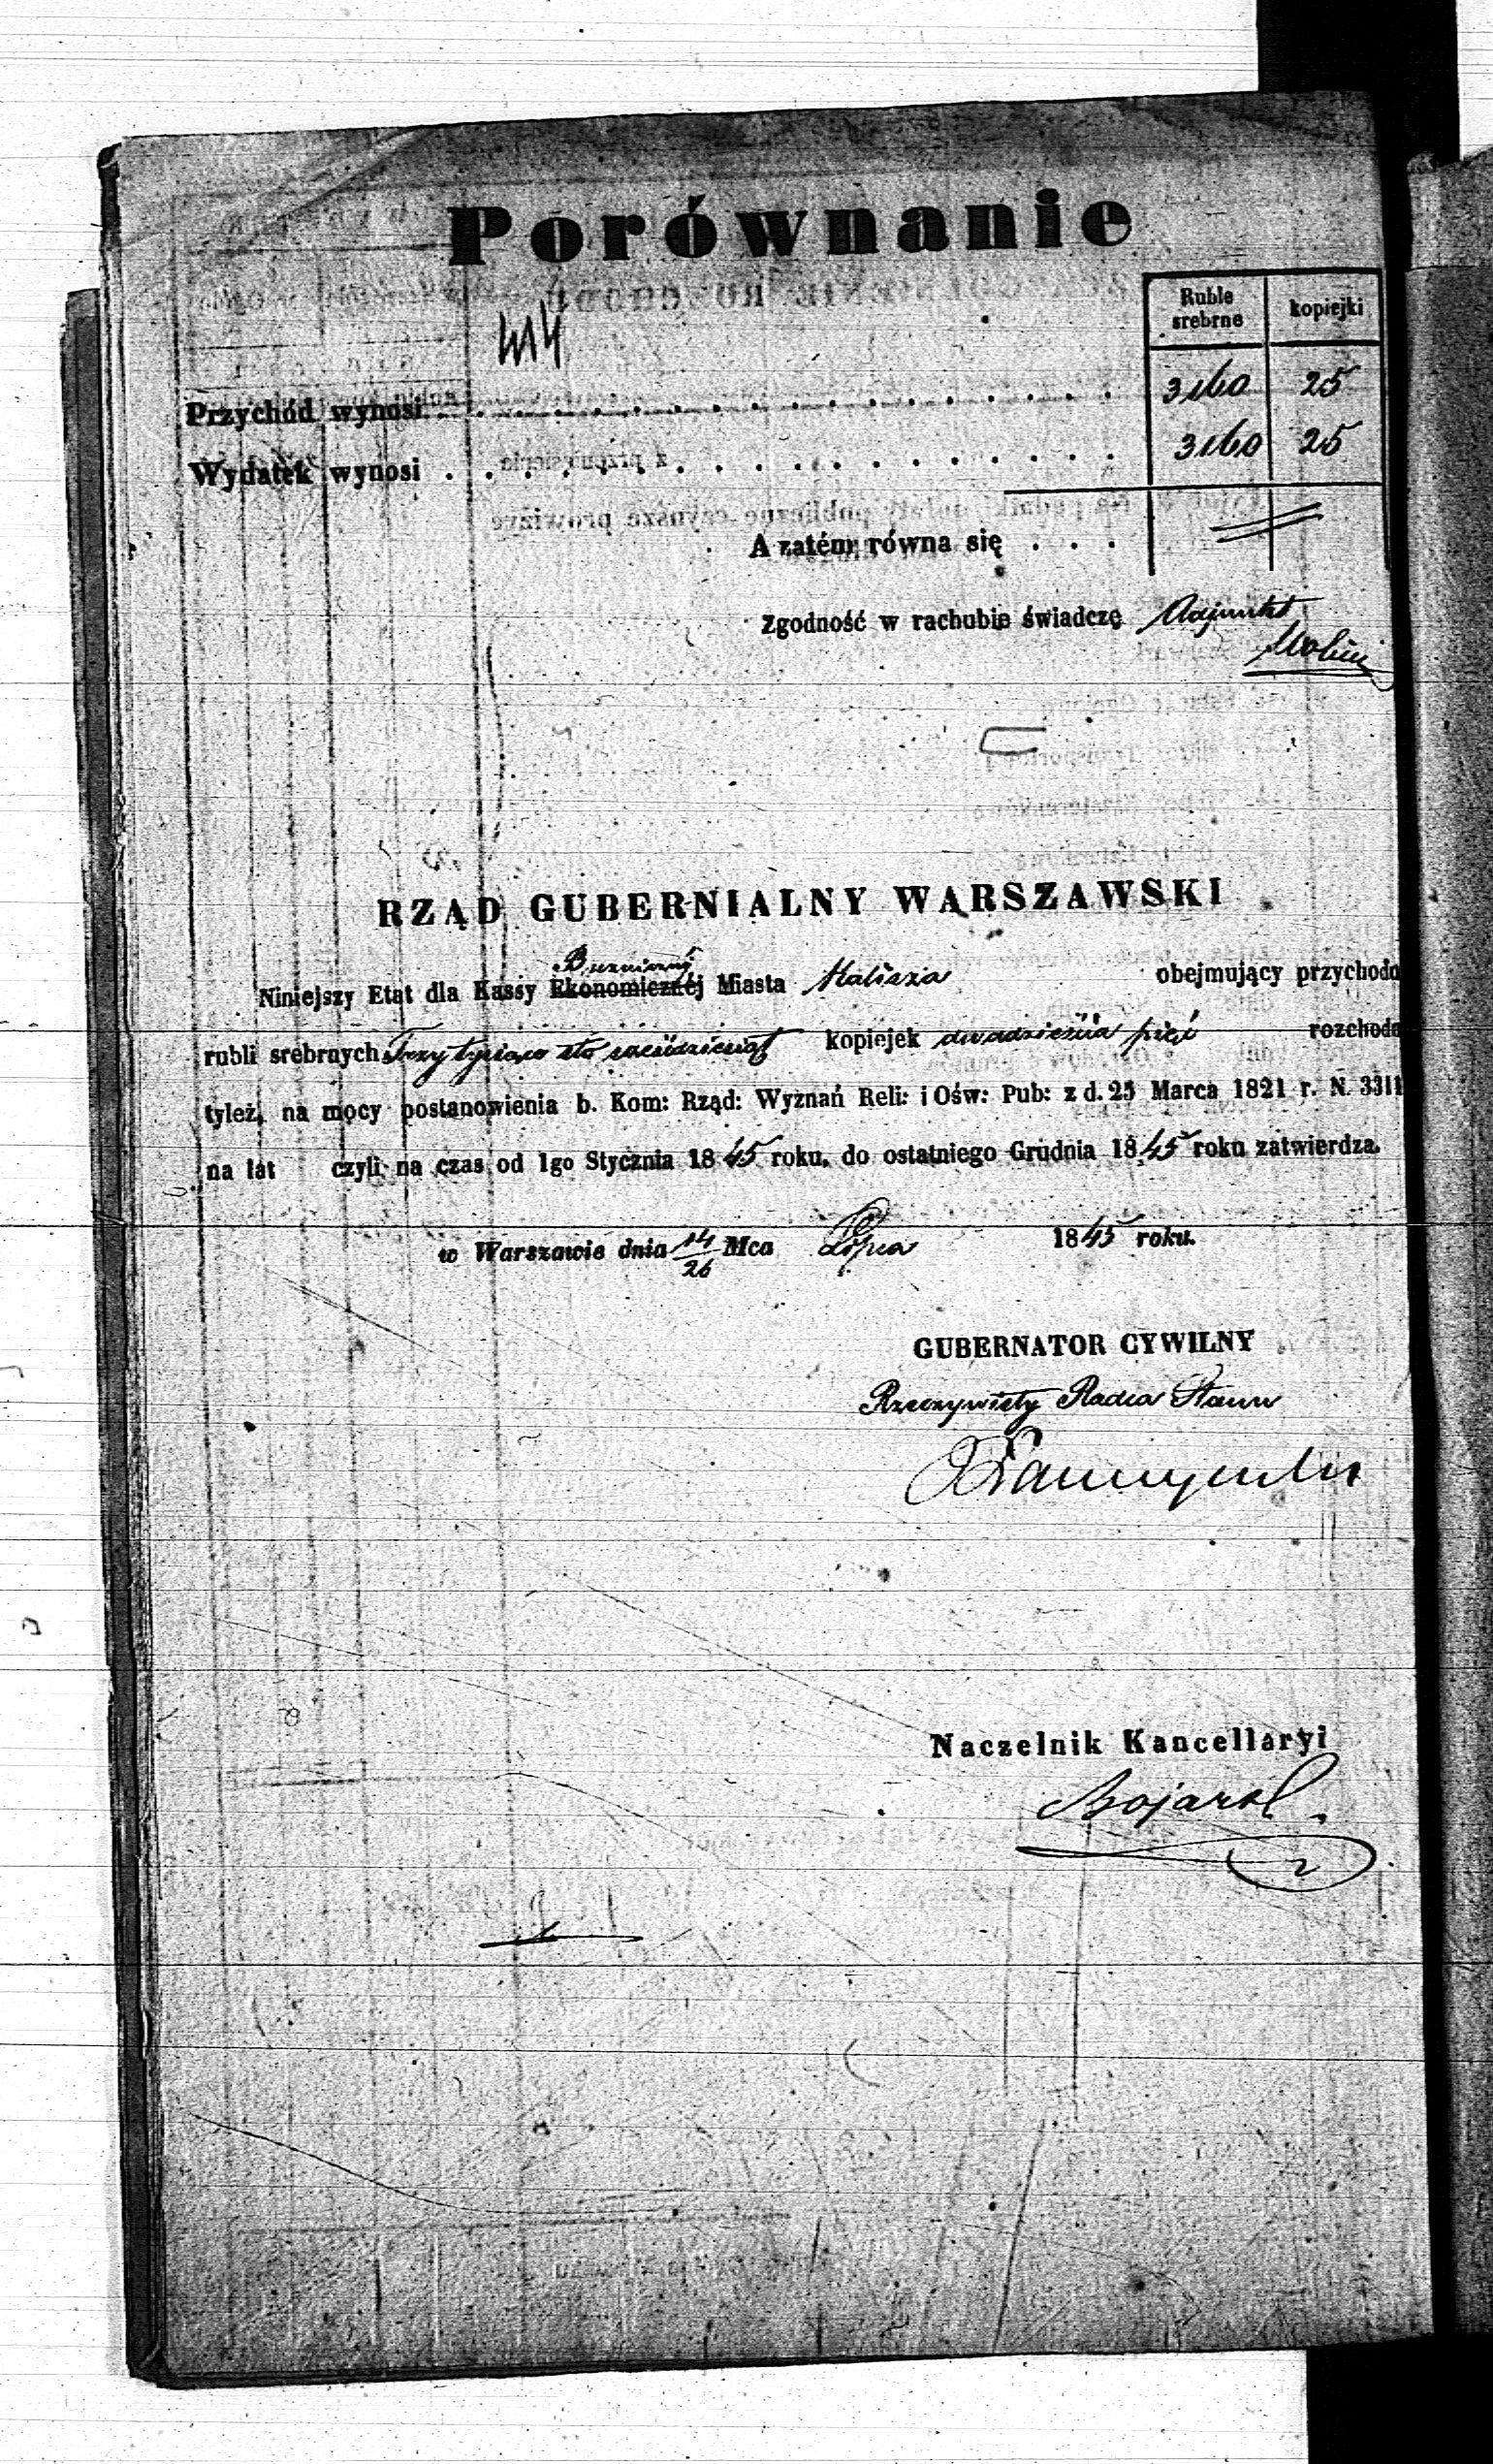 Porównanie
Ruble srebrne kopiejki
414
Przychód wynosi . . . 3160 25
Wydatek wynosi . . . 3160 25
A zatém równa się . . .
Zgodność w rachubie świadczę Adjunkt
RZĄD GUBERNIALNY WARSZAWSKI
Bużniczej
Niniejszy Etat dla Kassy Ekonomicznéj Miasta Kalisza obejmujący przychodu
rubli srebrnych Trzy tysiące sto sześćdziesiąt kopiejek dwadzieścia pięć rozchodu
tyleż, na mocy postanowienia b. Kom: Rząd: Wyznań Reli: i Ośw: Pub: z d. 25 Marca 1821 r. N. 3311
na lat czyli na czas od 1go Stycznia 1845 roku, do ostatniego Grudnia 1845 roku zatwierdza.
w Warszawie dnia 14/26 Mca Lipca 1845 roku.
GUBERNATOR CYWILNY
Rzeczywisty Radca Stanu
Naczelnik Kancellaryi